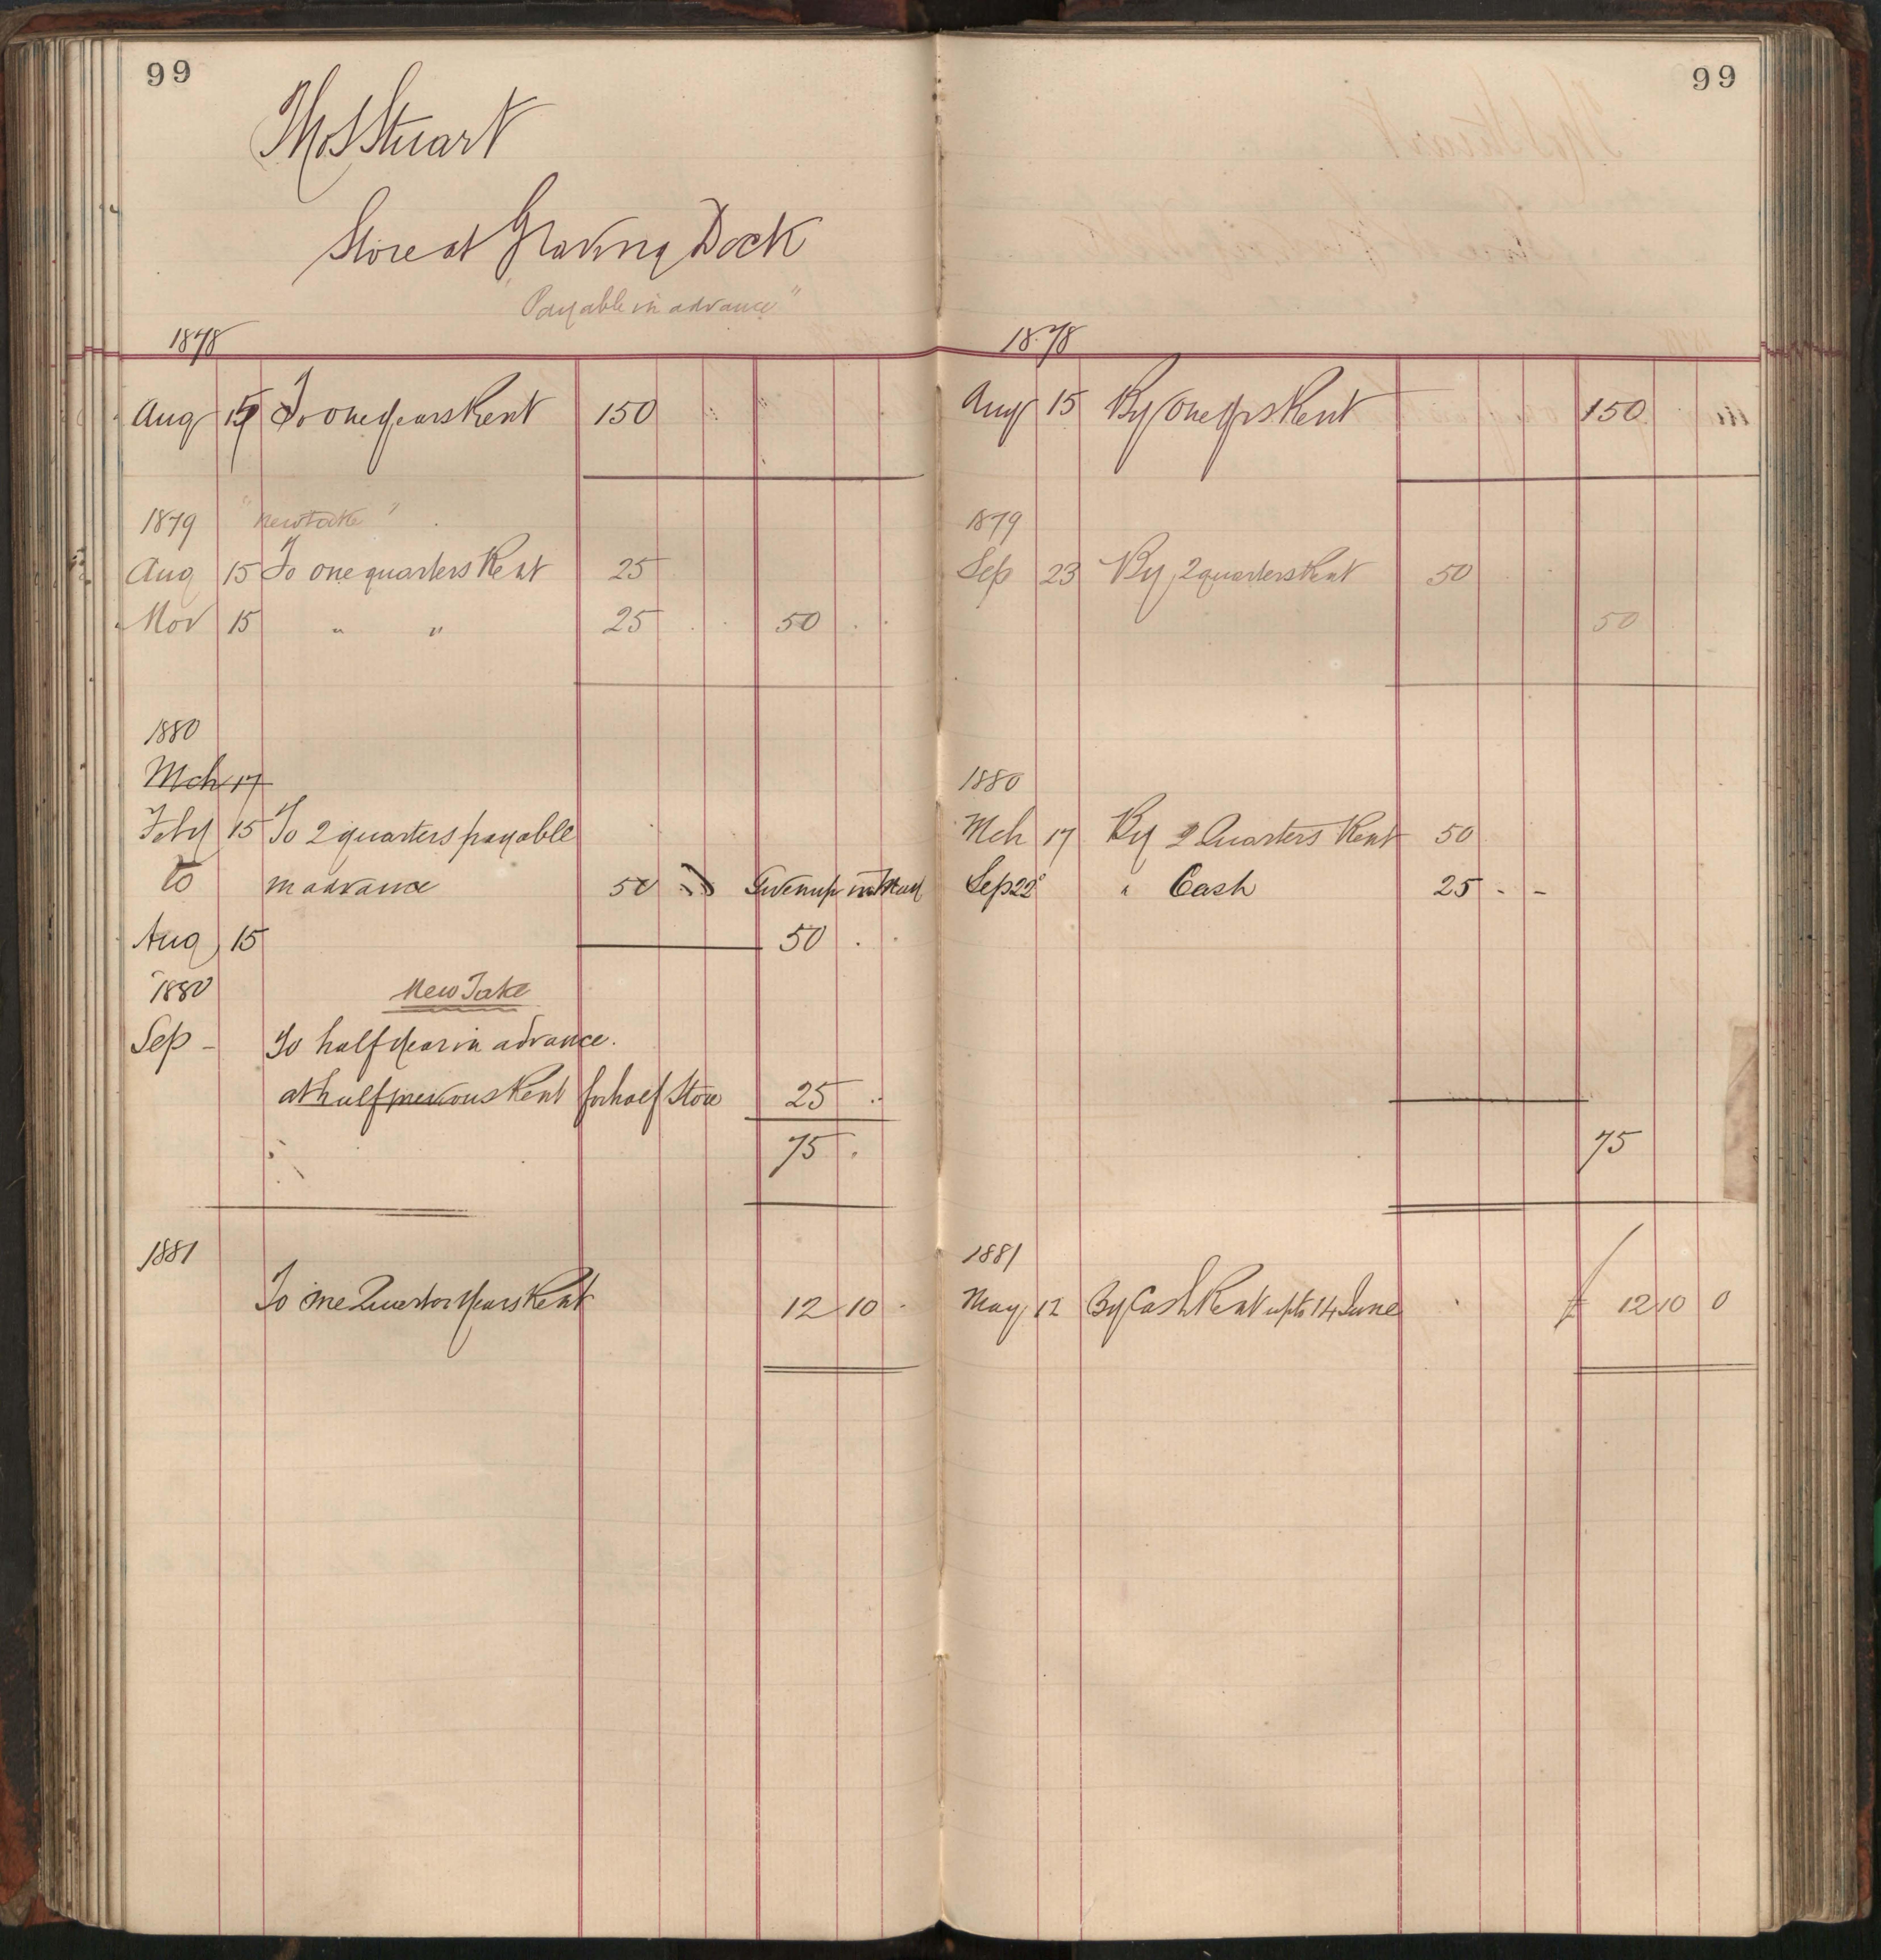 99
Thos Stuart
Store at Graving Dock
"Payable in advance"
1878
Aug 15 To one years Rent 150 " "
1879 "new take"
Aug 15 To one quarters Rent 25
Nov 15 " " 25 . . 50 . .
1880
Mch 17
Feby 15 To 2 quarters payable
to in advance 50 Given up in May
Aug 15 50 . .
1880 New Take
Sep - To half year in advance.
at half previous Rent for half Store 25
75 .
1881
To one Quarter Years Rent 12 10 .
99
1878
Aug 15 By One Yrs Rent 150
1879
Sep 23 By 2 quarters Rent 50
50
1880
Mch 17 By 2 Quarters Rent 50
Sep 22 " Cash 25 - -
75
1881
May 12 By Cash Rent up to 14 June £ 12 10 0